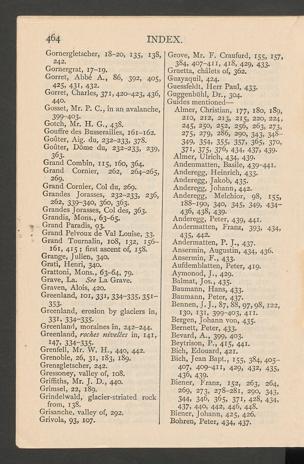 464
INDEX.
Gornergletscher, 18-20, 135, 138,
242.
Gornergrat, 17-19.
Gorret, Abbé A., 86, 392, 405,
425, 431, 432.
Gorret, Charles, 371, 420-423, 436,
440.
Gosset, Mr. P. C., in an avalanche,
399-403.
Gotch, Mr. H. G., 438.
Gouffre des Busserailles, 161-162.
Goûter, Aig. du, 232-233, 378.
Goûter, Dôme du, 232-233, 239,
363.
Grand Combin, 115, 160, 364.
Grand Cornier, 262, 264-265,
269.
Grand Cornier, Col du, 269.
Grandes Jorasses, 232-233, 236,
262, 339-340, 360, 363.
Grandes Jorasses, Col des, 363.
Grandis, Mons., 63-65.
Grand Paradis, 93.
Grand Pelvoux de Val Louise, 33.
Grand Tournalin, 108, 132, 156-
161, 415; first ascent of, 158.
Grange, Julien, 340.
Grati, Henri, 340.
Grattoni, Mons., 63-64, 79.
Grave, La. See La Grave.
Graven, Alois, 420.
Greenland, 101, 331, 334-335, 351-
353.
Greenland, erosion by glaciers in,
331, 334-335.
Greenland, moraines in, 242-244.
Greenland, roches nivelées in, 141,
147, 334-335.
Grenfell, Mr. W. H., 440, 442.
Grenoble, 26, 31, 183, 189.
Grenzgletscher, 242.
Gressoney, valley of, 108.
Griffiths, Mr. J. D., 440.
Grimsel, 22, 189.
Grindelwald, glacier-striated rock
from, 138.
Grisanche, valley of, 292.
Grivola, 93, 107.
Grove, Mr. F. Craufurd, 155, 157,
384, 407-411, 418, 429, 433.
Gruetta, châlets of, 362.
Guayaquil, 424.
Guessfeldt, Herr Paul, 433.
Guggenbühl, Dr., 304.
Guides mentioned—
Almer, Christian, 177, 180, 189,
210, 212, 213, 215, 220, 224,
245, 250, 252, 256, 263, 273,
275, 279, 286, 290, 343, 348-
349, 354, 355, 357, 365, 370,
371, 375, 376, 434, 437, 439.
Almer, Ulrich, 434, 439.
Andenmatten, Basile, 439-441.
Anderegg, Heinrich, 433.
Anderegg, Jakob, 435.
Anderegg, Johann, 442.
Anderegg, Melchior, 98, 155,
188-190, 340, 345, 349, 434-
436, 438, 439.
Anderegg, Peter, 439, 441.
Andermatten, Franz, 393, 434,
435, 442.
Andermatten, P. J., 437.
Ansermin, Augustin, 434, 436.
Ansermin, F., 433.
Aufdemblatten, Peter, 419.
Aymonod, J., 429.
Balmat, Jos., 435.
Baumann, Hans, 433.
Baumann, Peter, 437.
Bennen, J. J., 87, 88, 97, 98, 122,
130, 131, 399-403, 411.
Bergen, Johann von, 435.
Bernett, Peter, 433.
Bevard, A., 399, 403.
Beytrison, P., 415, 441.
Bich, Edouard, 421.
Bich, Jean Bapt., 155, 384, 405-
407, 409-411, 429, 432, 435,
436, 439.
Biener, Franz, 152, 263, 264,
269, 273, 278-281, 290, 343,
344, 346, 365, 371, 428, 434,
437, 440, 442, 446, 448.
Biener, Johann, 425, 426.
Bohren, Peter, 434, 437.